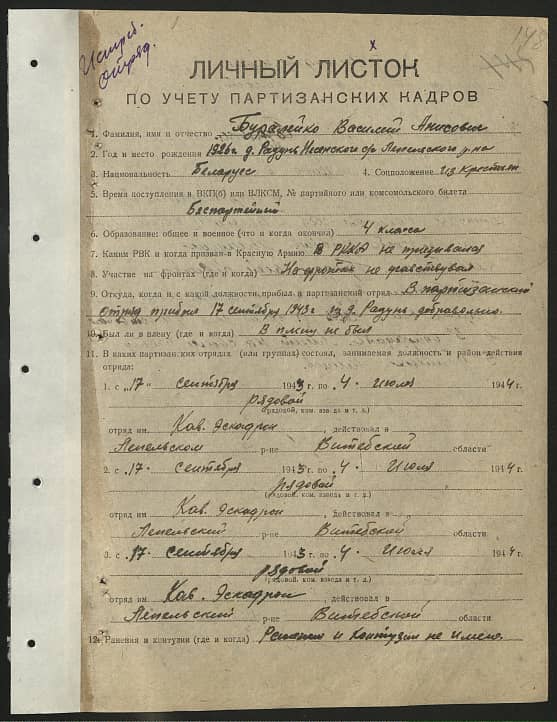 148
Истреб.
Отряд.
ЛИЧНЫЙ ЛИСТОК
ПО УЧЕТУ ПАРТИЗАНСКИХ КАДРОВ
1. Фамилия, имя и отчество Василий Анисович
2. Год и место рождения 1926 г. д. Радунь с/с Лепельского р-на
3. Национальность Беларус 4. Соцположение из Крестьян
5. Время поступления в ВКП(б) или ВЛКСМ, № партийного или комсомольского билета
Беспартейный
6. Образование: общее и военное (что и когда окончил) 4 класса
7. Каким РВК и когда призван в Красную Армию В РККА не призывался
8. Участие на фронтах (где и когда) На фронтах не учавствувал
9. Откуда, когда и с какой должности прибыл в партизанский отряд В партизанский
отряд прибыл 17 сентября 1943 г. из д. Радунь добравольно.
10. Был ли в плену (где и когда) В плену не был
11. В каких партизанских отрядах (или группах) состоял, занимаемая должность и район действия
отряда:
1. с „17" сентября 1943 г. по „4" Июля 1944 г.
рядовой
(рядовой, ком. взвода и т. д.)
отряд им. Кав. Эскадрон, действовал в
Лепельском р-не Витебской области
2. с „17" сентября 1943 г. по „4" Июля 1944 г.
рядовой
(рядовой, ком. взвода и т. д.)
отряд им. Кав. Эскадрон, действовал в
Лепельский р-не Витебской области
3. с „17" сентября 1943 г. по „4" Июля 1944 г.
рядовой
(рядовой, ком. взвода и т. д.)
отряд им. Кав. Эскадрон, действовал в
Лепельский р-не Витебской области
12. Ранения и контузии (где и когда) и Контузии не имею.